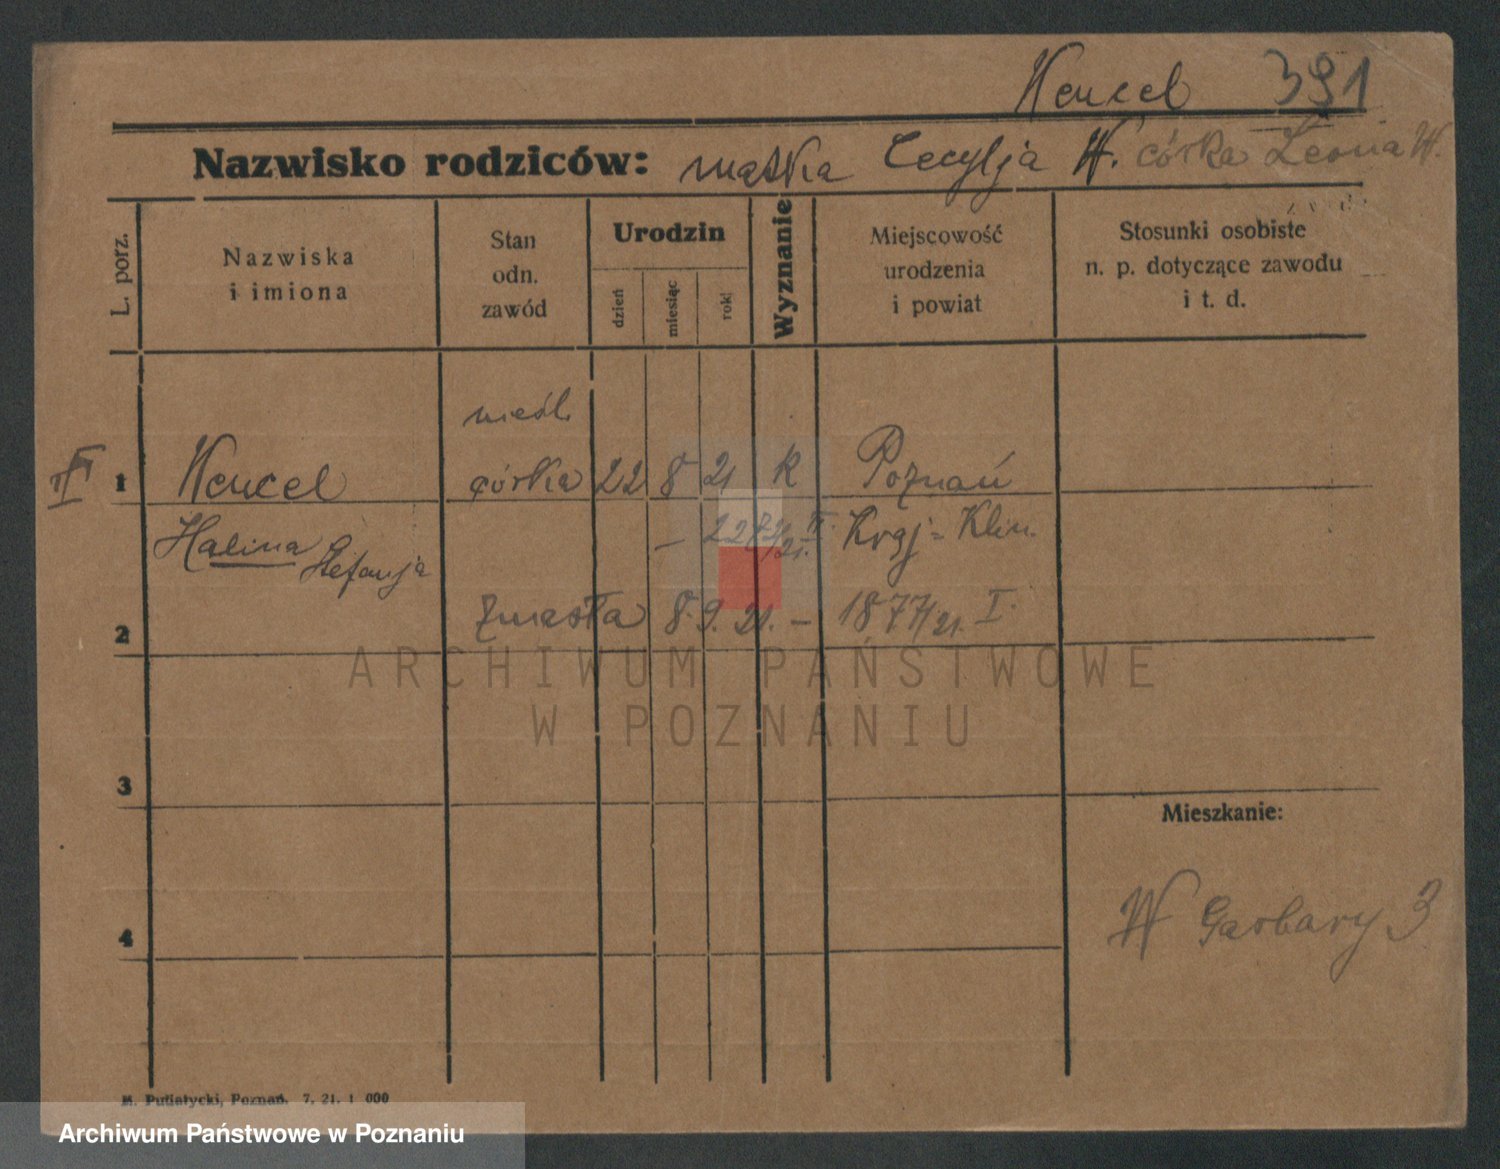 Wencel 391
Nazwisko rodziców: matka Cecylja W. córka Leona W.
L. porz.
Nazwiska
i imiona
Stan
odn.
zawód
Urodzin
dzień
miesiąc
rok
Wyznanie
Miejscowość
urodzenia
i powiat
Stosunki osobiste
n. p. dotyczące zawodu
i t. d.
nieśl.
II 1 Wencel córka 22 8 21 k Poznań
Halina Stefanja
– 2272/21. II. Kraj. Klin.
2 zmarła 8. 9. 21. – 1877/21. I.
3
Mieszkanie:
4
W Garbary 3
M. Putiatycki, Poznań. 7. 21. 1 000
ARCHIWUM PAŃSTWOWE
W POZNANIU
Archiwum Państwowe w Poznaniu